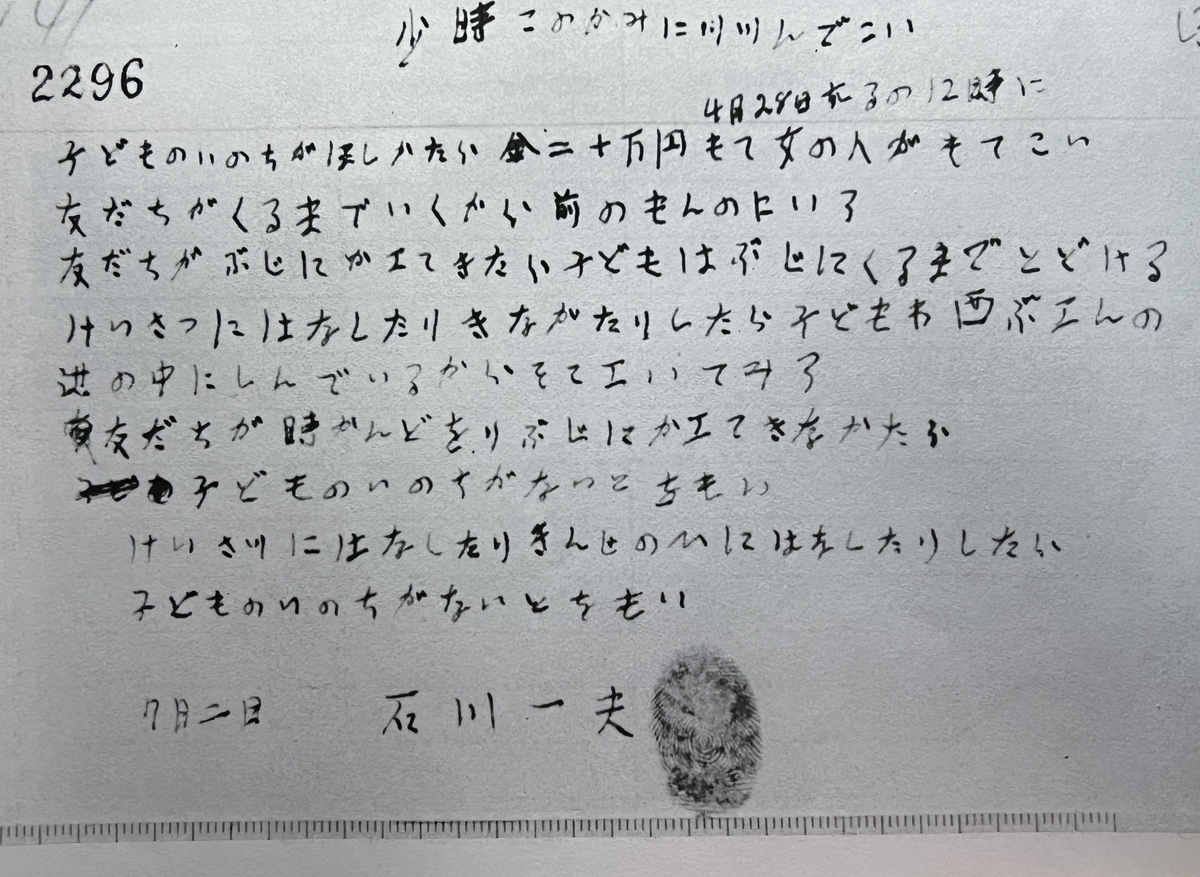 少時このかみに川川んでこい
2296
4月28日よるの12時に
子どものいのちがほしかたら金二十万円もて女の人がもてこい
友だちがくるまでいくから前のもんのとにいろ
友だちがぶじにかエてきたら子どもはぶじにくるまでとどける
けいさつにはなしたりきなかたりしたら子どもわ西ぶエんの
池の中にしんでいるからそてエいてみろ
友だちが時かんどをりぶじにかエてきなかたら
子どものいのちがないとをもい
けいさ川にはなしたりきんじの人にはなしたりしたら
子どものいのちがないとをもい
7月二日 石川一夫